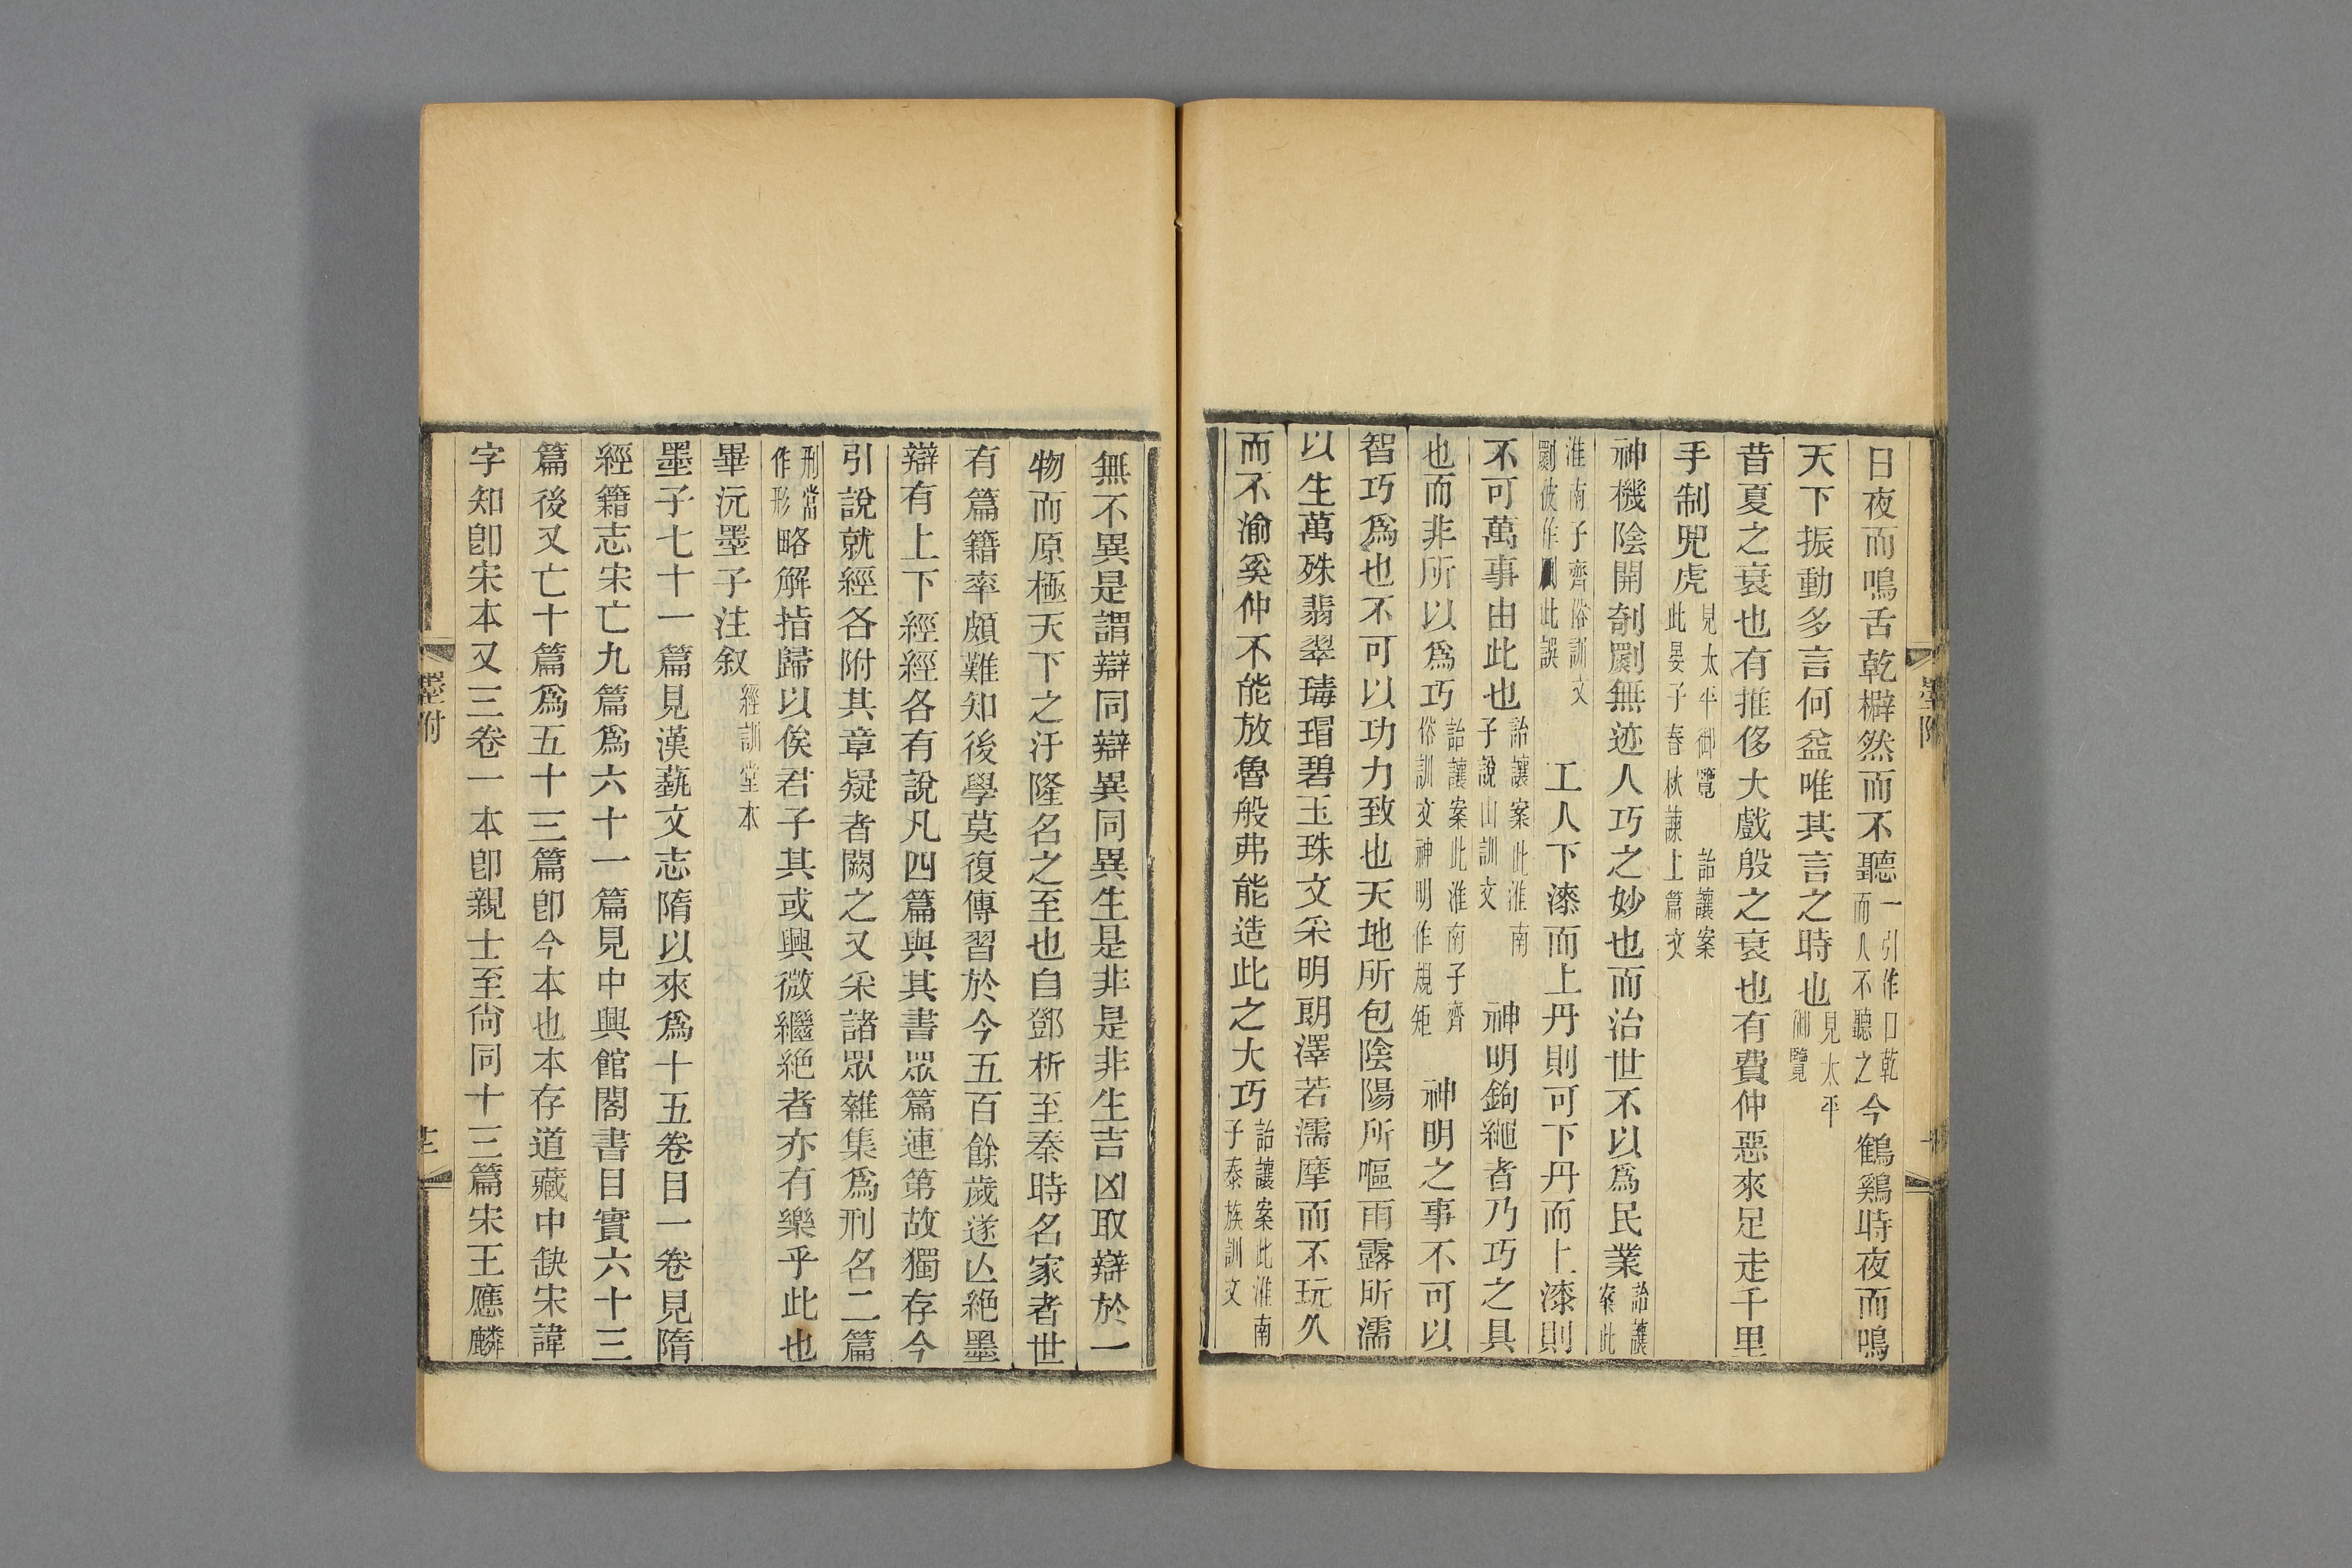 日夜而鳴舌乾檘然而不聽一引作口乾而人不聽之今鶴鷄時夜而鳴
天下振動多言何益唯其言之時也見太平御覽
昔夏之衰也有推侈大戲殷之衰也有費仲惡來足走千里
手制兕虎見太平御覽 詒讓案此晏子春秋諫上篇文
神機陰開剞劂無迹人巧之妙也而治世不以爲民業詒讓案此
淮南子齊俗訓文劂彼作劂此誤 工人下漆而上丹則可下丹而上漆則
不可萬事由此也詒讓案此淮南子說山訓文 神明鉤繩者乃巧之具
也而非所以爲巧詒讓案此淮南子齊俗訓文神明作規矩 神明之事不可以
智巧爲也不可以功力致也天地所包陰陽所嘔雨露所濡
以生萬殊翡翠瑇瑁碧玉珠文采明朗澤若濡摩而不玩久
而不渝奚仲不能放魯般弗能造此之大巧詒讓案此淮南子泰族訓文
無不異是謂辯同辯異同異生是非是非生吉凶取辯於一
物而原極天下之汙隆名之至也自鄧析至秦時名家者世
有篇籍率頗難知後學莫復傳習於今五百餘歲遂亾絶墨
辯有上下經經各有說凡四篇與其書眾篇連第故獨存今
引說就經各附其章疑者闕之又采諸眾雜集爲刑名二篇
刑當作形略解指歸以俟君子其或興微繼絶者亦有樂乎此也
畢沅墨子注叙經訓堂本
墨子七十一篇見漢蓺文志隋以來爲十五卷目一卷見隋
經籍志宋亡九篇爲六十一篇見中興館閣書目實六十三
篇後又亡十篇爲五十三篇卽今本也本存道藏中缺宋諱
字知卽宋本又三卷一本卽親士至尙同十三篇宋王應麟
墨附